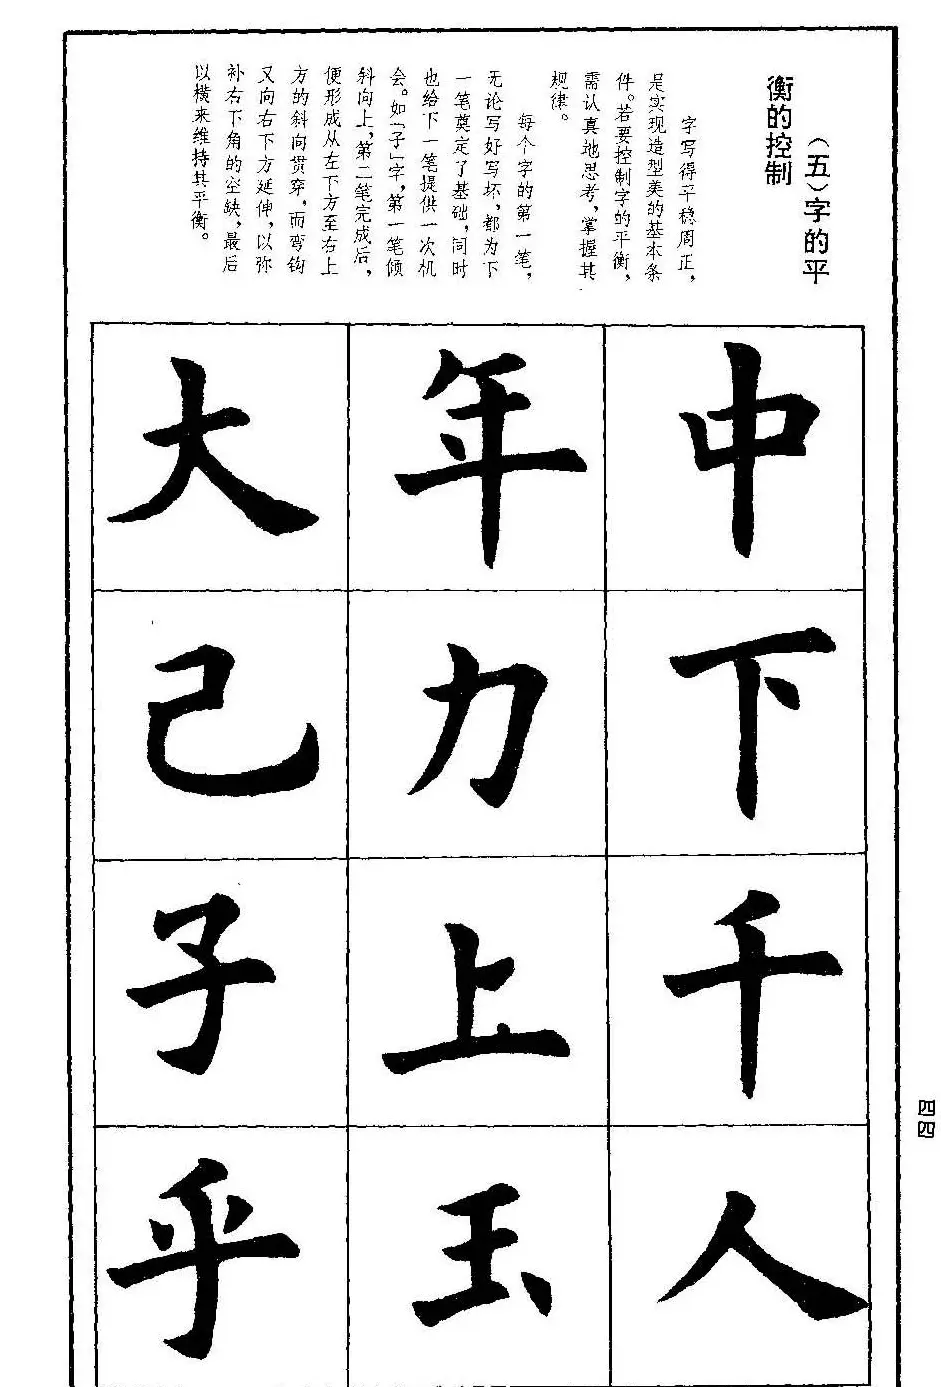 （五）字的平
衡的控制
字写得平稳周正，
是实现造型美的基本条
件。若要控制字的平衡，
需认真地思考，掌握其
规律。
每个字的第一笔，
无论写好写坏，都为下
一笔奠定了基础，同时
也给下一笔提供一次机
会。如「子」字，第一笔倾
斜向上，第二笔完成后，
便形成从左下方至右上
方的斜向贯穿，而弯钩
又向右下方延伸，以弥
补右下角的空缺，最后
以横来维持其平衡。
中下千人
年力上玉
大己子乎
四四